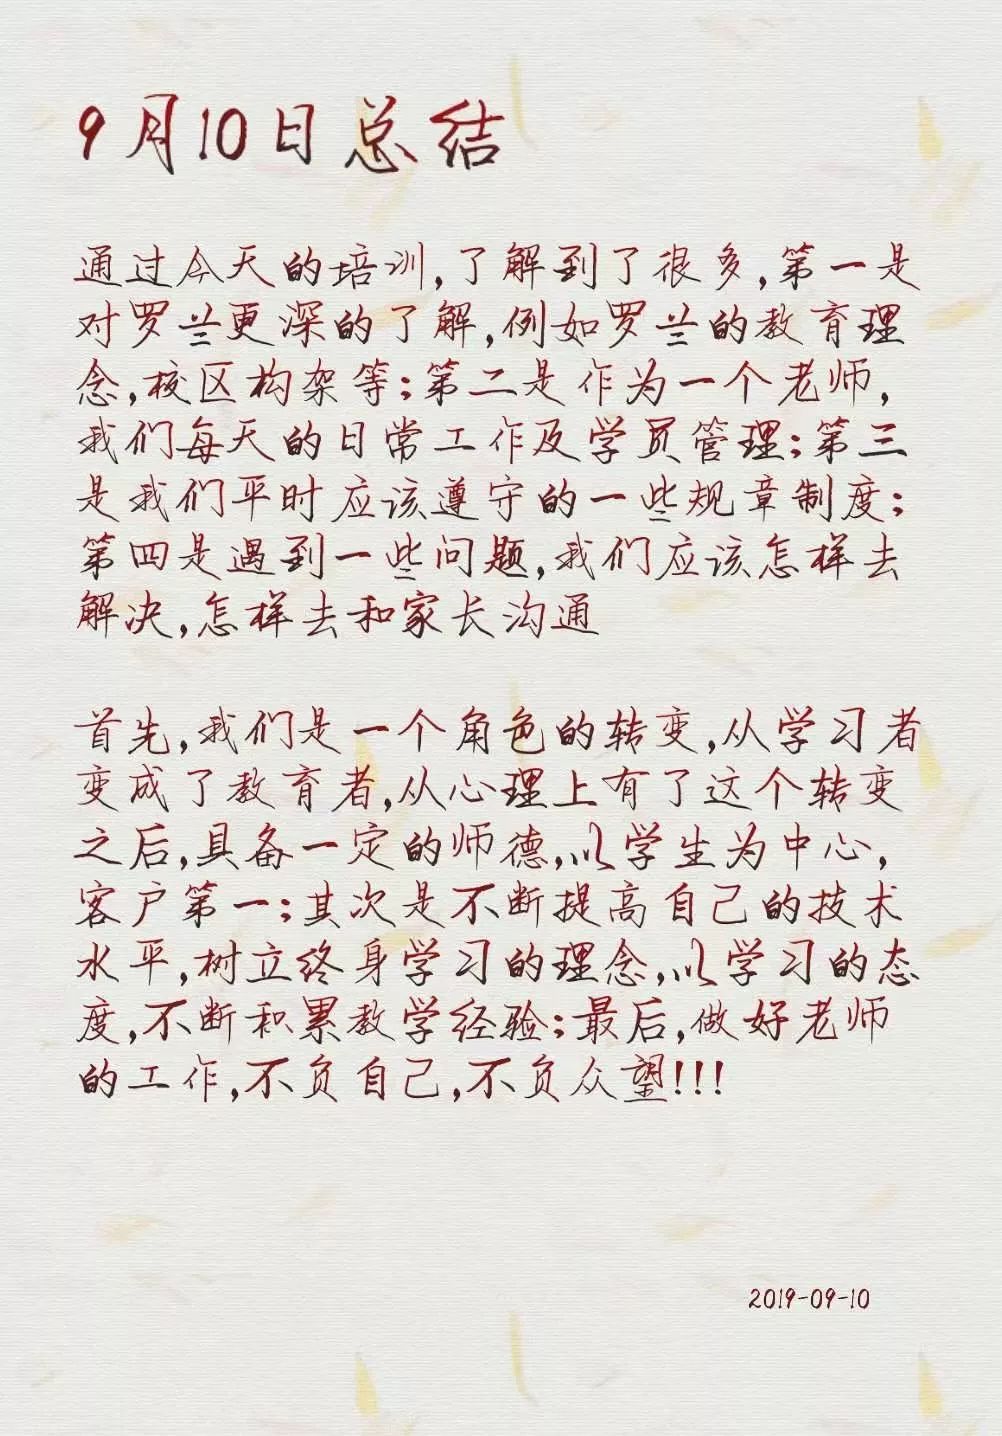 9月10日总结
通过今天的培训,了解到了很多,第一是
对罗兰更深的了解,例如罗兰的教育理
念,校区构架等;第二是作为一个老师,
我们每天的日常工作及学员管理;第三
是我们平时应该遵守的一些规章制度;
第四是遇到一些问题,我们应该怎样去
解决,怎样去和家长沟通
首先,我们是一个角色的转变,从学习者
变成了教育者,从心理上有了这个转变
之后,具备一定的师德,以学生为中心,
客户第一;其次是不断提高自己的技术
水平,树立终身学习的理念,以学习的态
度,不断和累教学经验;最后,做好老师
的工作,不负自己,不负众望!!!
2019-09-10